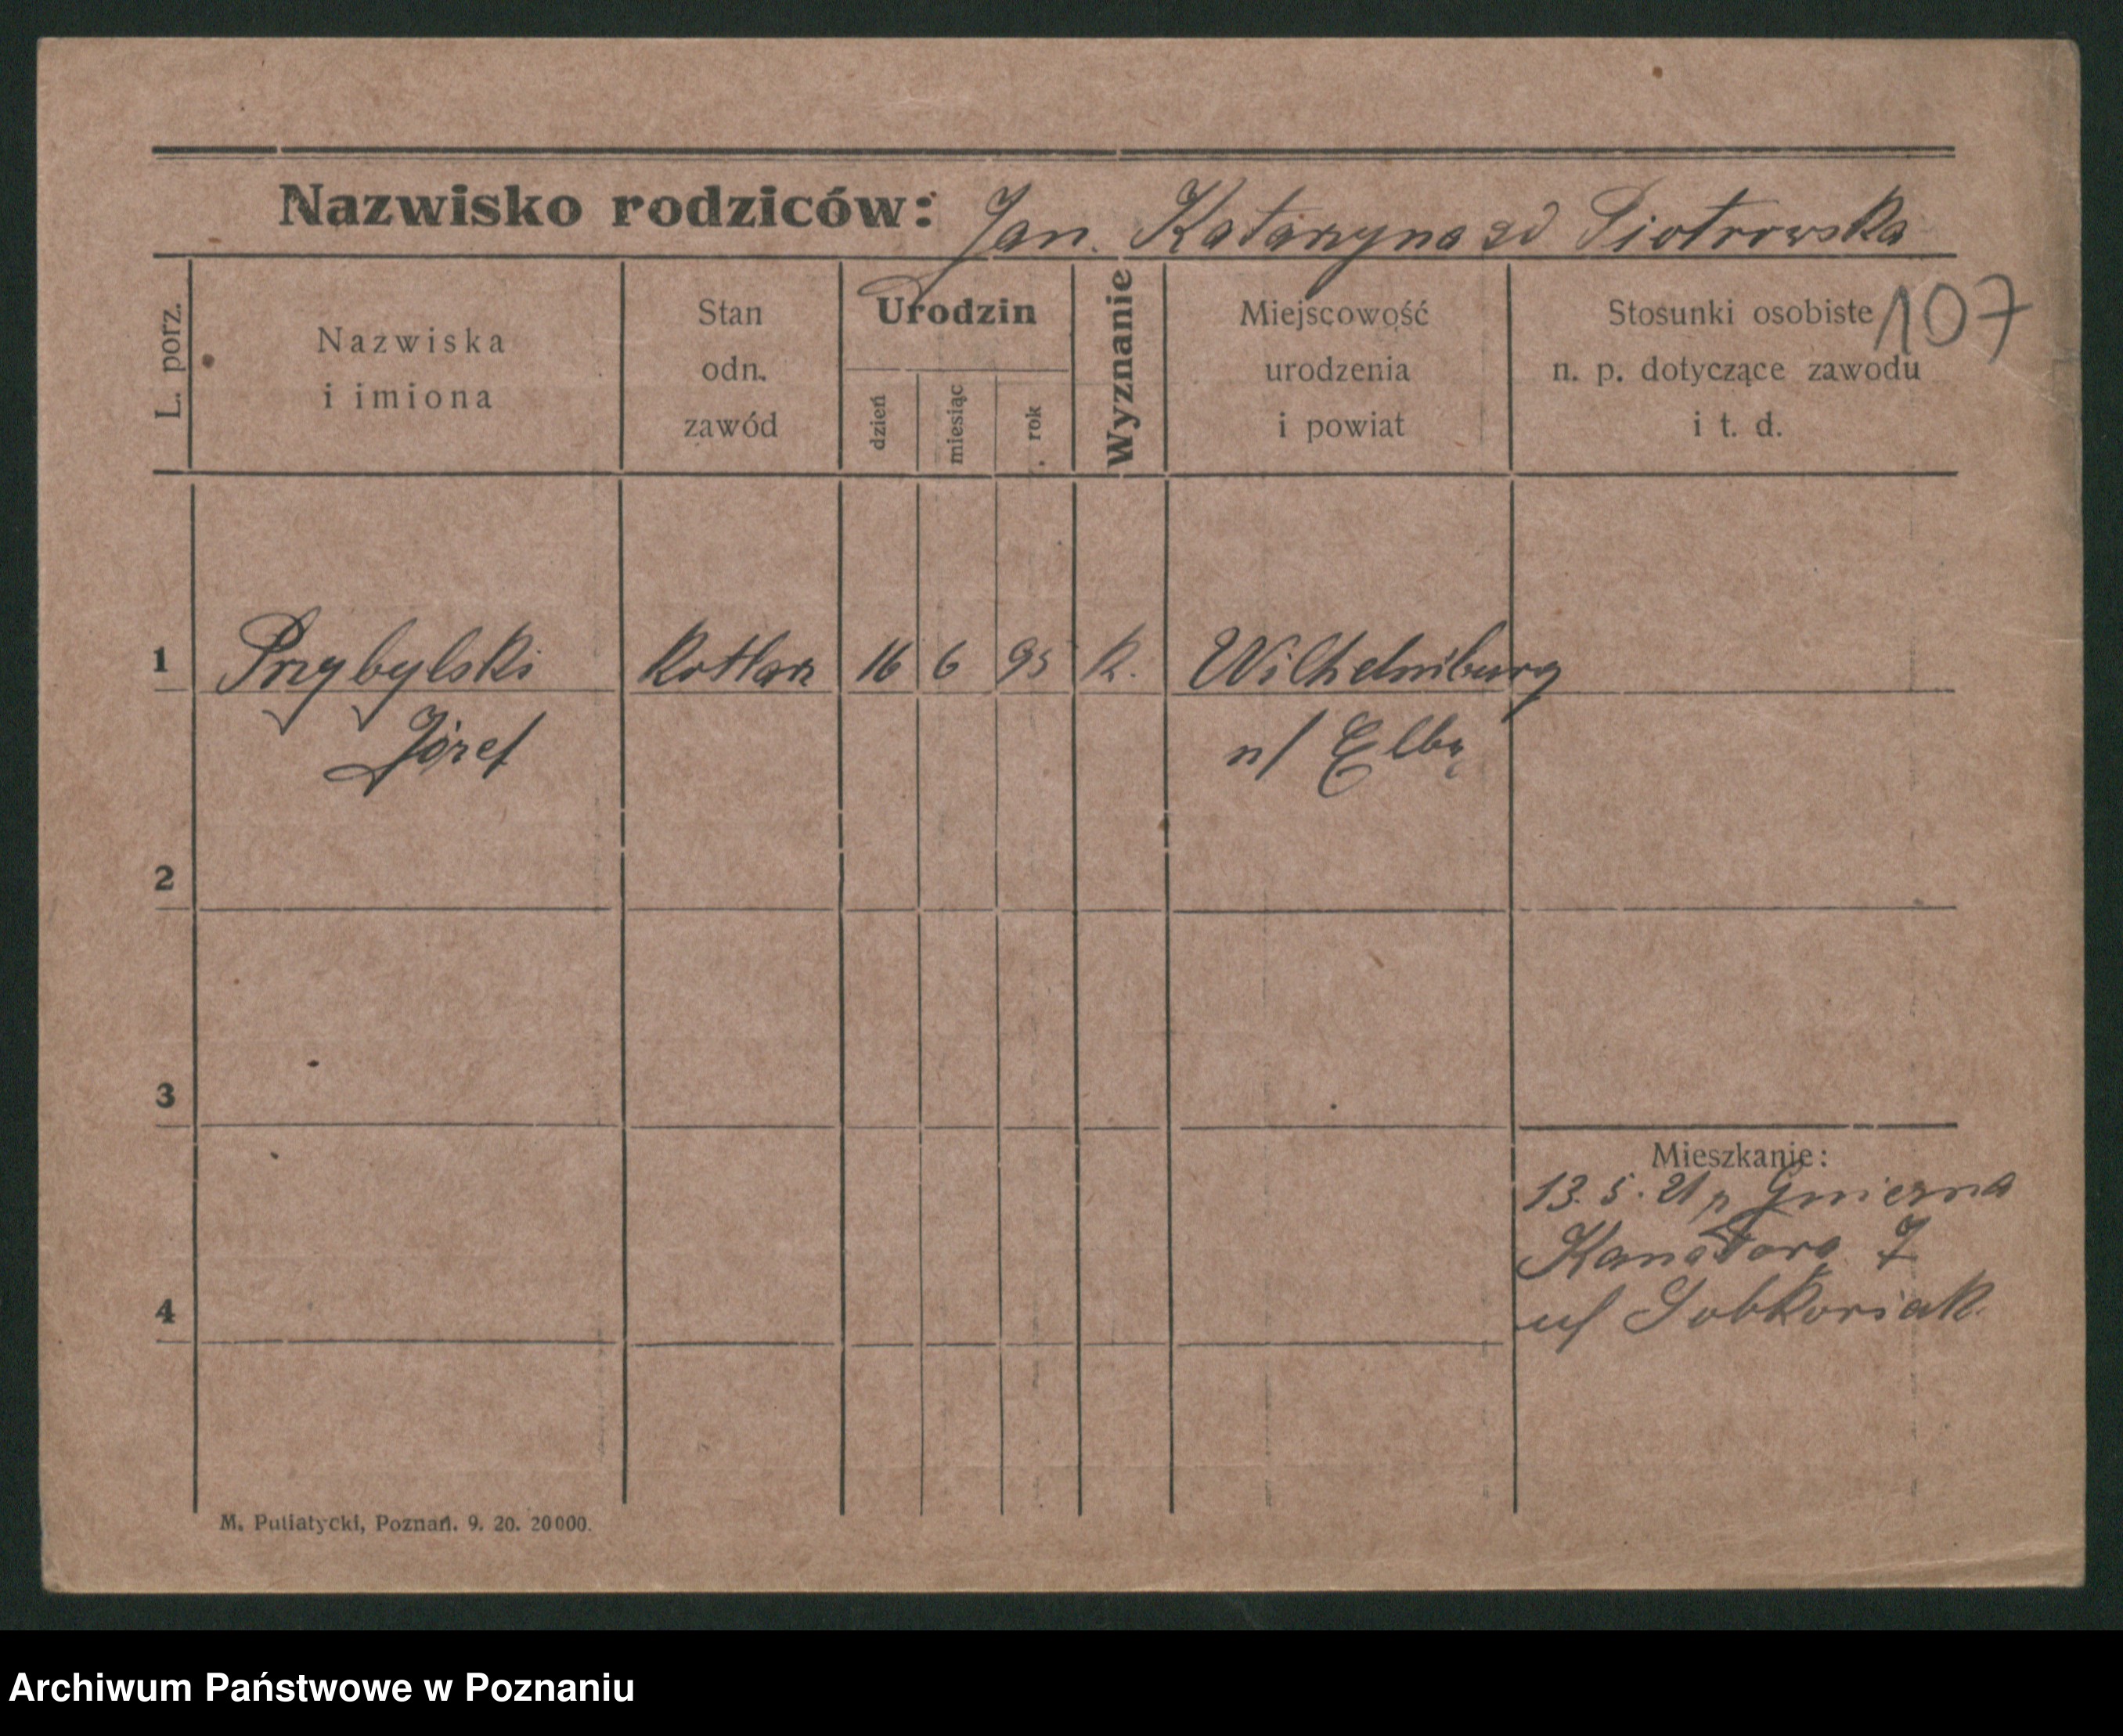 Nazwisko rodziców: Jan. Katarzyna zd Piotrowska
107
L. porz.
Nazwiska
i imiona
Stan
odn.
zawód
Urodzin
dzień
miesiąc
rok
Wyznanie
Miejscowość
urodzenia
i powiat
Stosunki osobiste
n. p. dotyczące zawodu
i t. d.
1 Przybylski kotlarz 16 6 95 k. Wilhelmsburg
Józef n/ Elbą
2
3
Mieszkanie:
13. 5. 21 p Gniezna
7
4 u/
M. Putiatycki, Poznań. 9. 20. 20000.
Archiwum Państwowe w Poznaniu